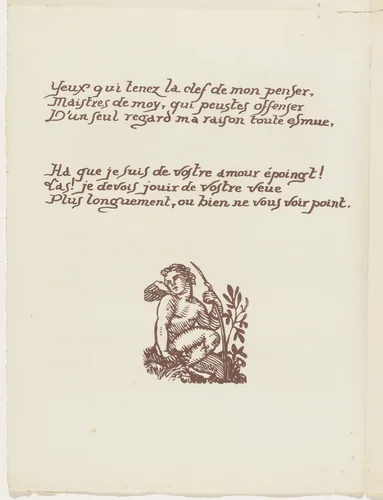 Yeux qui tenez la clef de mon penser,
Maistres de moy, qui peustes offenser
D'un seul regard ma raison toute esmue,
Ha que je suis de vostre amour époingt!
Las! je devois jouir de vostre veue
Plus longuement, ou bien ne vous voir point.